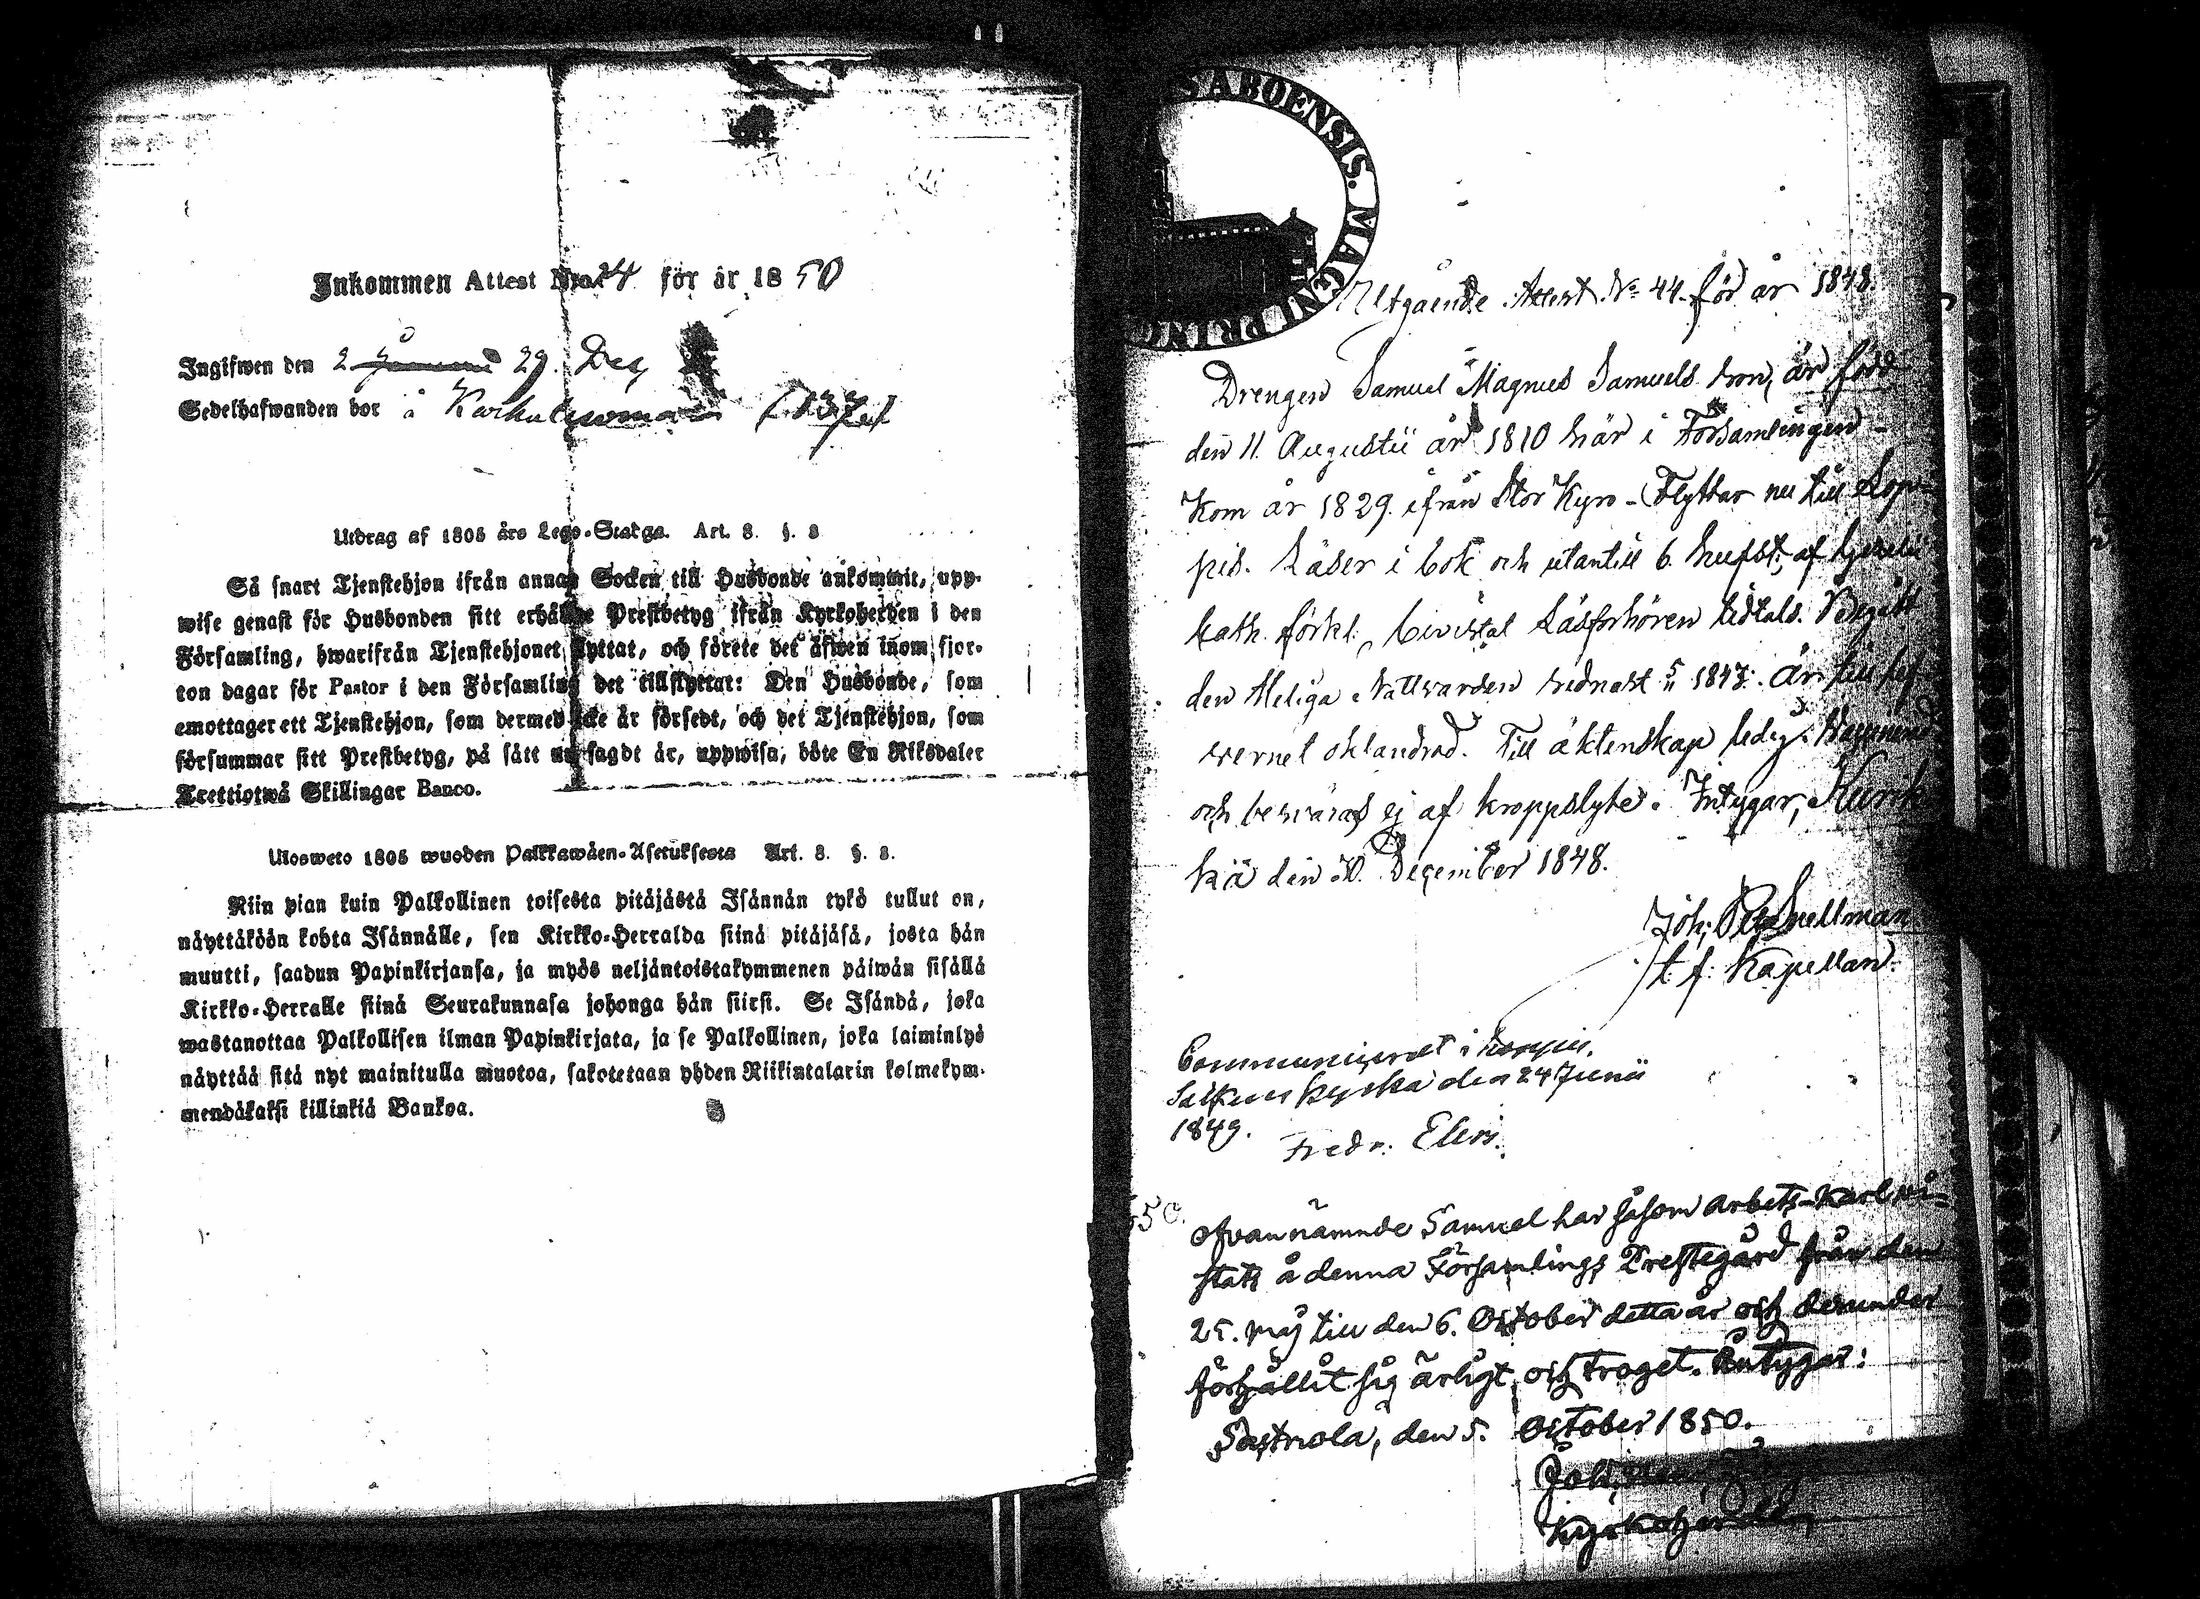 Inkommen Attest Nro 24 för år 1850
Ingifwen den 2 29. Dec
Sedelhafwanden bor å
Utdrag af 1805 års Lego-Stadga. Art. 8. §. 8
Så snart Tjenstehjon ifrån annan Socken till Husbonde ankommit, upp-
wise genast för Husbonden sitt erhållne Prestbetyg ifrån Kyrkoherden i den
Församling, hwarifrån Tjenstehjonet flyttat, och förete det äfwen inom fjor-
ton dagar för Pastor i den Församling det tillflyttat: Den Husbonde, som
emottager ett Tjenstehjon, som dermed icke är försedt, och det Tjenstehjon, som
försummar sitt Prestbetyg, på sätt nu sagdt är, uppwisa, böte En Riksdaler
Trettiotwå Skillingar Banco.
Ulosweto 1805 wuoden Palkkawäen-Asetuksesta Art. 8. §. 8.
Niin pian kuin Palkollinen toisesta pitäjästä Isännän tykö tullut on,
näyttäköön kohta Isännälle, sen Kirkko-Herralda siinä pitäjäsä, josta hän
muutti, saadun Papinkirjansa, ja myös neljäntoistakymmenen päiwän sisällä
Kirkko-Herralle siinä Seurakunnasa johonga hän siirsi. Se Isändä, joka
wastanottaa Palkollisen ilman Papinkirjata, ja se Palkollinen, joka laiminlyö
näyttää sitä nyt mainitulla muotoa, sakotetaan yhden Riikintalarin kolmekym-
mendäkaksi killinkiä Bankoa.
S ABOENSIS. MAGNI PRINC
Utgående Attest No 44. för år 1848.
Drengen Samuel Magnus Samuels son, är född
den 11. Augusti år 1810 här i Församlingen
Kom år 1829. ifrån Stor Kyro - Flyttar nu till Kop-
pis. Läser i bok och utantill 6. hufst; af
Cath. förkl: bevistat Läsförhören tidtals. Begått
den Heliga Nattvarden sednast 1847. Är till lef-
vernet oklandrad. Till äktenskap ledig.
och besväras ej af kroppslyte. Intygar, Kurik-
ka den 30. December 1848.
Joh: Snellman
t. f. Kapellan.
Communicerat i
kyrka den 24 Junii
1849. Fredr.
50.
Ofvannämnde Samuel har såsom arbets-Karl vi-
stats å denna Församlings Prestegård från den
25. Maj till den 6. October detta år och derunder
förhållit sig ärligt och troget. Intygar:
Sastmola, den 5. October 1850.
Joh:
Kyrkoherde